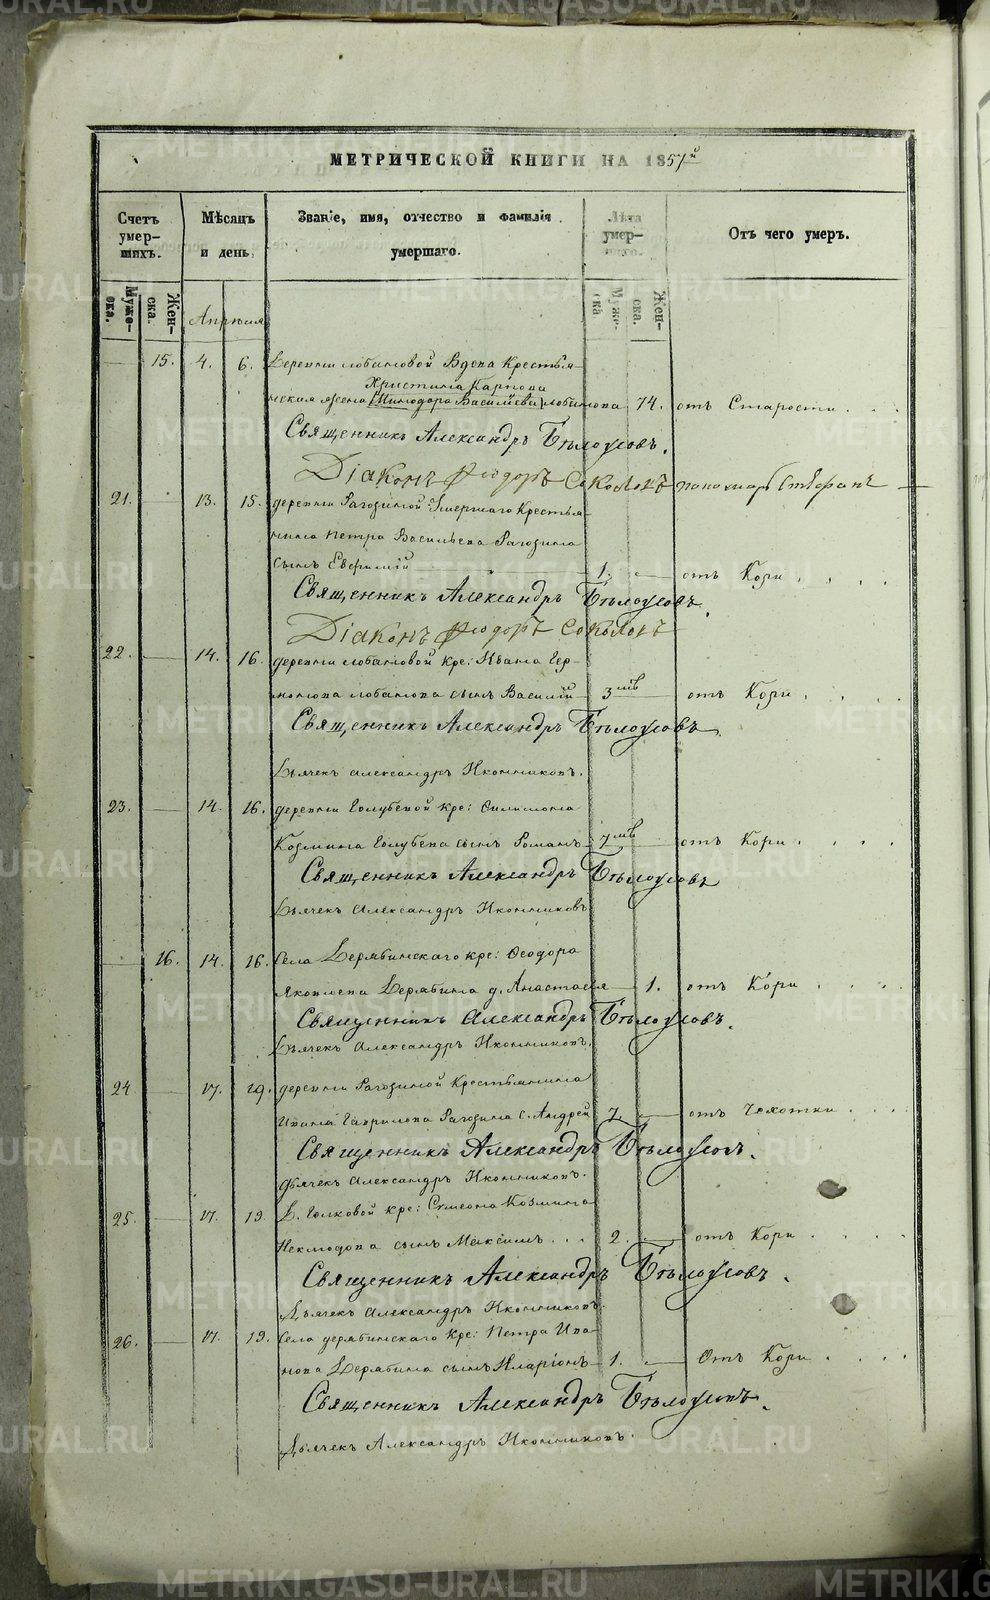 METRIKI.GASO-URAL.RU
МЕТРИЧЕСКОЙ КНИГИ НА 1857й
Счетъ умер- шихъ.
Мѣсяцъ и день.
Званіе, имя, отчество и фамилія умершаго.
Лѣта умер- шаго.
Отъ чего умеръ.
Муже- ска.
Жен- ска.
Муже- ска
Жен- ска.
Апрѣля
15. 4. 6. Деревни Лобановой Вдова Крестья-
Христина Карпова
нская жена (Минодора Василіева) Лобанова 74. отъ Старости
Священникъ Александръ Бѣлоусовъ.
Діаконъ Феодоръ Соколовъ пономарь Стефанъ
21. 13. 15. деревни Рагозиной Умершаго Крестья-
нина Петра Васильева Рагозина
сынъ Евфимій 1. отъ Кори
Священникъ Александръ Бѣлоусовъ.
Діаконъ Феодоръ Соколовъ
22. 14. 16. деревни Лобановой кре: Ивана
Лобанова сынъ Василій 3 мѣ отъ Кори
Священникъ Александръ Бѣлоусовъ
Дьячекъ Александръ Иконниковъ.
23. 14. 16. деревни Голубевой кре: Филимона
Козмина Голубева сынъ Романъ 7 мѣ отъ Кори
Священникъ Александръ Бѣлоусовъ
Дьячекъ Александръ Иконниковъ
16. 14. 16. Села Дерябинскаго кре: Феодора
Яковлева Дерябина д. Анастасія 1. отъ Кори
Священникъ Александръ Бѣлоусовъ.
Дьячекъ Александръ Иконниковъ.
24 17. 19. деревни Рагозиной Крестьянина
Ивана Гаврилова Рагозина с. Андрей 7 отъ Чахотки
Священникъ Александръ Бѣлоусовъ.
Дьячекъ Александръ Иконниковъ.
25. 17. 19. Д. Голковой кре: Сумеона Козмина
сынъ Максимъ 2. отъ Кори
Священникъ Александръ Бѣлоусовъ.
Дьячекъ Александръ Иконниковъ.
26. 17. 19. Села дерябинскаго кре: Петра Ива-
нова Дерябина сынъ Иларіонъ 1. Отъ Кори
Священникъ Александръ Бѣлоусовъ.
Дьячекъ Александръ Иконниковъ.